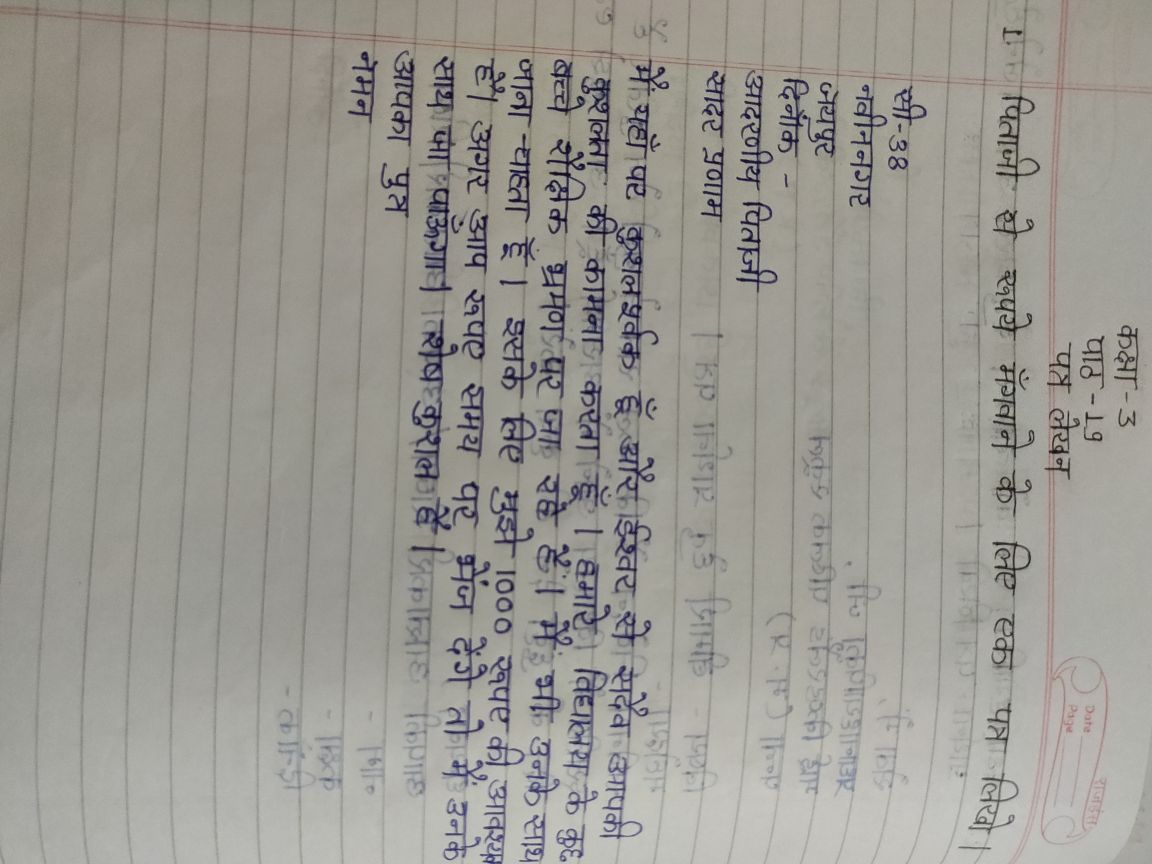 कक्षा-3
पाठ-19
पत्र लेखन
राजहंस
Date
Page
1- पिताजी से रूपये मंगवाने के लिए एक पत्र लिखे।
सी-38
नवीननगर
जयपुर
दिनाँक -
आदरणीय पिताजी
सादर प्रणाम
में यहाँ पर कुशलपूर्वक हूँ और ईश्वर से सदैव आपकी
कुशलता की कामना करता हूँ। हमारे विद्यालय के कुछ
बच्चे शैक्षिक भ्रमण पर जा रहे है। मैं भी उनके साथ
जाना चाहता हूँ। इसके लिए मुझे 1000 रूपए की आवश्य
है। अगर आप रूपए समय पर भेज देंगे तो में उनके
साथ जा पाऊगा। शेष कुशल है।
आपका पुत्र
नमन